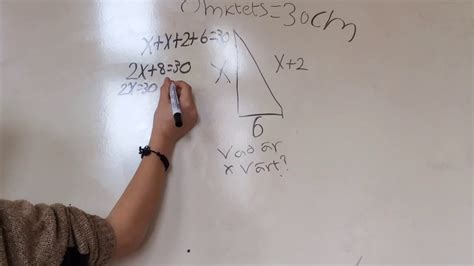 Omktets=30cm
x+x+2+6=30
2x+8=30
2x=30
x
x+2
6
Vad är
x värt?